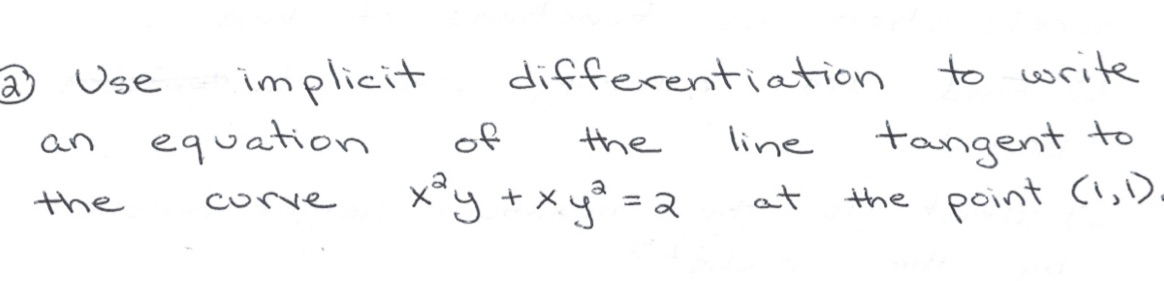 ② Use implicit differentiation to write
an equation of the line tangent to
the curve x²y + xy² = 2 at the point (1,1).